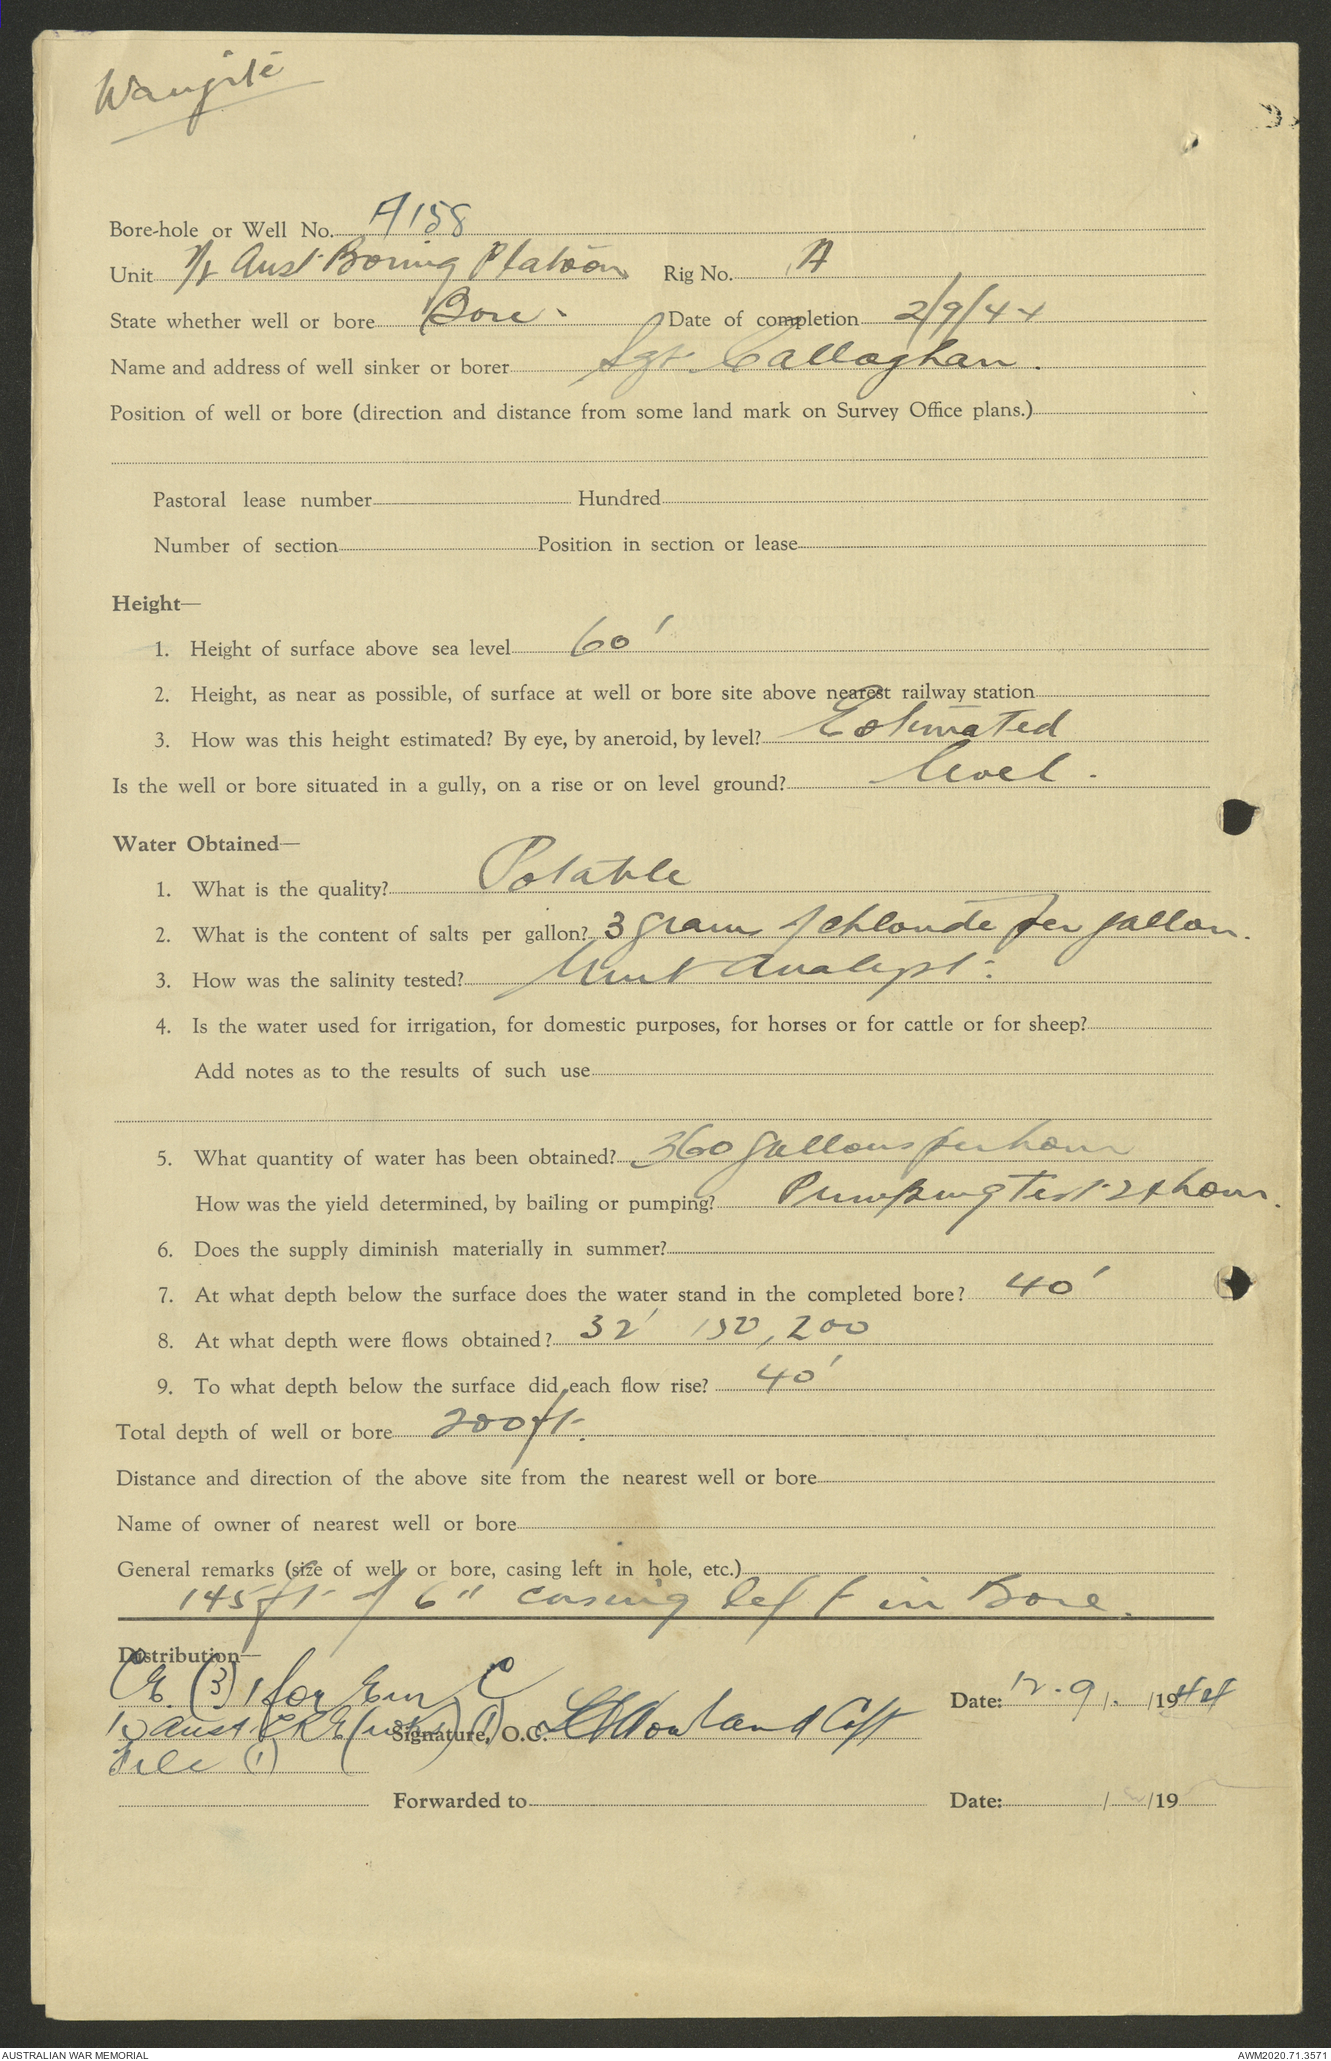 Bore-hole or Well No. A158
Unit Aust Boring Platoon Rig No. A
State whether well or bore Bore. Date of completion 2/9/44
Name and address of well sinker or borer Sgt. Callaghan.
Position of well or bore (direction and distance from some land mark on Survey Office plans.)
Pastoral lease number Hundred
Number of section Position in section or lease
Height—
1. Height of surface above sea level 60'
2. Height, as near as possible, of surface at well or bore site above nearest railway station
3. How was this height estimated? By eye, by aneroid, by level? Estimated
Is the well or bore situated in a gully, on a rise or on level ground? level.
Water Obtained—
1. What is the quality? Potable
2. What is the content of salts per gallon? 3 grams of chloride per gallon.
3. How was the salinity tested? Unit Analyst.
4. Is the water used for irrigation, for domestic purposes, for horses or for cattle or for sheep?
Add notes as to the results of such use
5. What quantity of water has been obtained? 360 gallons per hour
How was the yield determined, by bailing or pumping? Pumping Test 24 hour.
6. Does the supply diminish materially in summer?
7. At what depth below the surface does the water stand in the completed bore? 40'
8. At what depth were flows obtained? 32' 150, 200
9. To what depth below the surface did each flow rise? 40'
Total depth of well or bore 200 ft.
Distance and direction of the above site from the nearest well or bore
Name of owner of nearest well or bore
General remarks (size of well or bore, casing left in hole, etc.)
145 ft of 6" casing left in Bore.
Distribution—
CE. (3) 1 for E in C
Date: 12.9/ /1944
Aust CRE (1) Signature, O.C. Capt
File (1)
Forwarded to Date: / /19
AUSTRALIAN WAR MEMORIAL AWM2020.71.3571